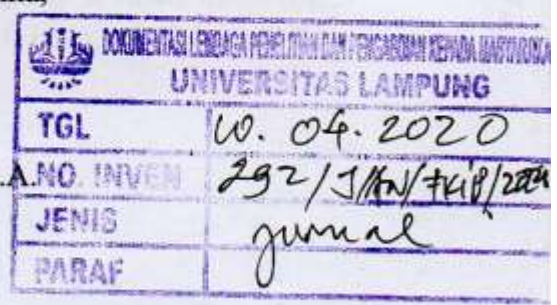 DOKUMENTASI LEMBAGA PENELITIAN DAN PENGABDIAN KEPADA MASYARAKAT
UNIVERSITAS LAMPUNG
TGL 10. 04. 2020
.A. NO. INVEN 292/J/ /FKIP/
JENIS Jurnal
PARAF